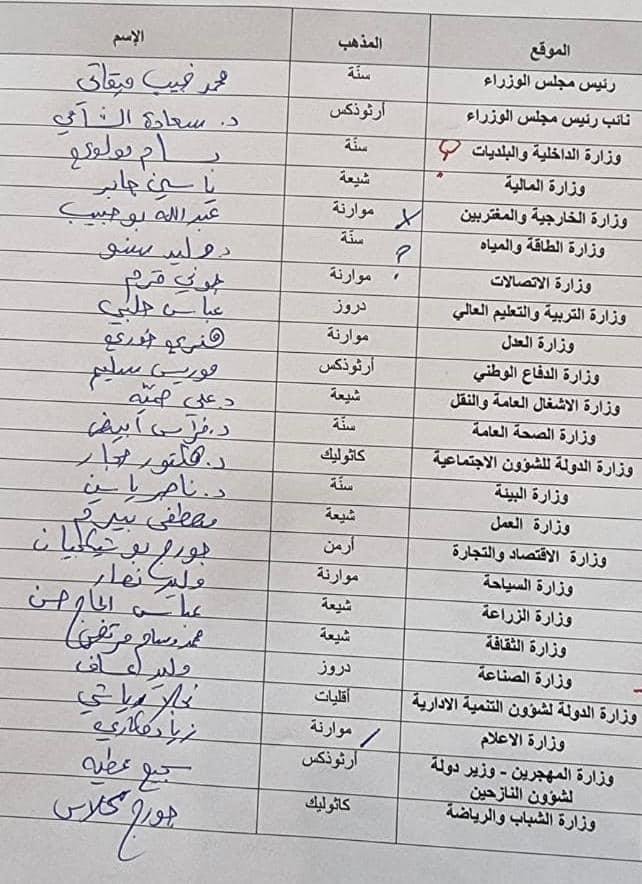 الموقع المذهب الإسم
رئيس مجلس الوزراء سنّة محمد نجيب ميقاتي
نائب رئيس مجلس الوزراء أرثوذكس د. سعادة الشامي
وزارة الداخلية والبلديات سنّة بسام مولوي
وزارة المالية شيعة ياسين جابر
وزارة الخارجية والمغتربين موارنة عبدالله بوحبيب
وزارة الطاقة والمياه سنّة ? د. وليد سنو
وزارة الاتصالات موارنة جوني قرم
وزارة التربية والتعليم العالي دروز عباس حلبي
وزارة العدل موارنة هنري خوري
وزارة الدفاع الوطني أرثوذكس موريس سليم
وزارة الاشغال العامة والنقل شيعة د. علي حميّة
وزارة الصحة العامة سنّة د. فراس أبيض
وزارة الدولة للشؤون الاجتماعية كاثوليك د. هكتور حجار
وزارة البيئة سنّة د. ناصر ياسين
وزارة العمل شيعة مصطفى بيرم
وزارة الاقتصاد والتجارة أرمن جورج بوشيكيان
وزارة السياحة موارنة وليد نصار
وزارة الزراعة شيعة عباس الحاج حسن
وزارة الثقافة شيعة محمد وسام مرتضى
وزارة الصناعة دروز وليد عساف
وزارة الدولة لشؤون التنمية الادارية أقليات نجلا رياشي
وزارة الاعلام موارنة زياد مكاري
وزارة المهجرين - وزير دولة أرثوذكس سجيع عطيه
لشؤون النازحين
وزارة الشباب والرياضة كاثوليك جورج كلاس